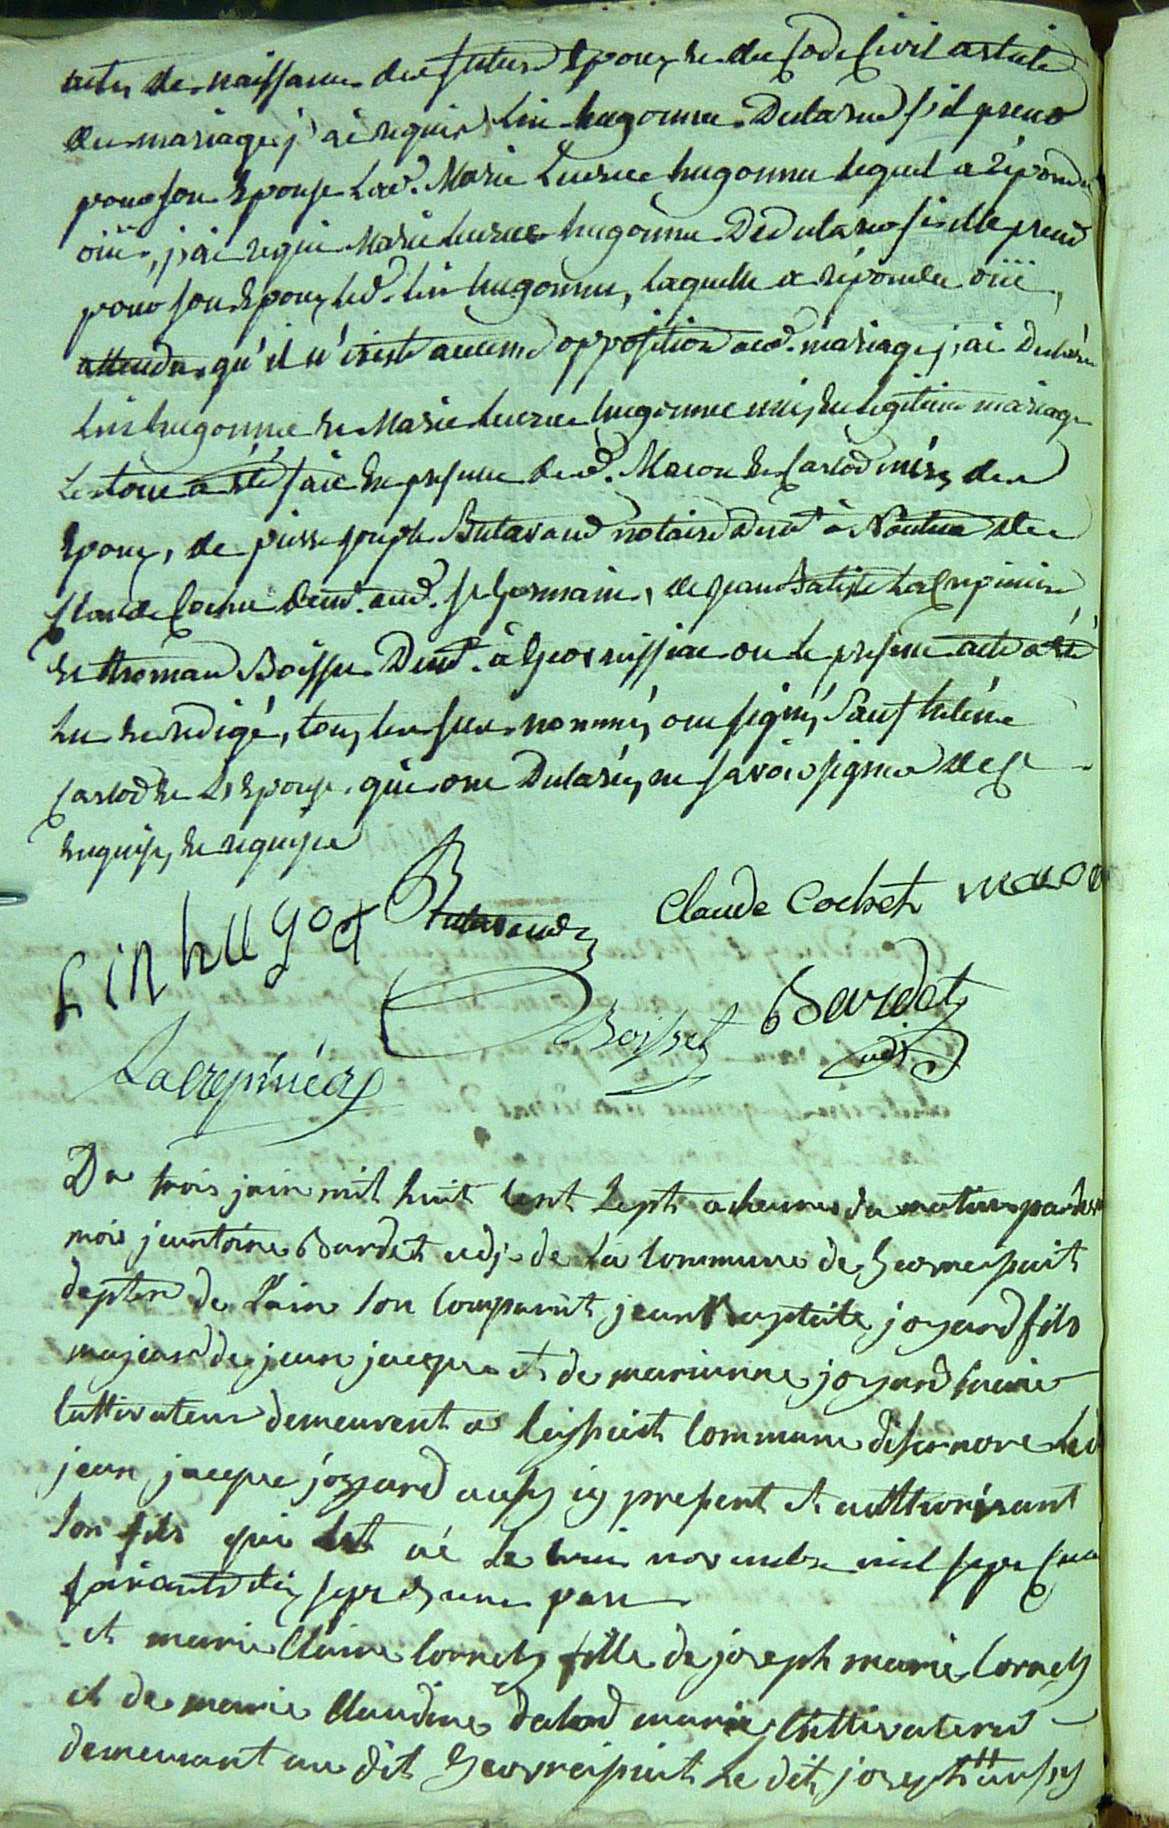 actes de naissance des futurs Epoux et du Code Civil article
du mariage, j'ai requis Lin hugonnet Declarer s'il prend
pour son Epouse lad. Marie Lucrece hugonnet lequel a répondu
oüi, j'ai requis Marie Lucrece hugonnet De declarer si elle prend
pour son Epoux led. Lin hugonnet, laquelle a répondu oüi,
attendu qu'il n'existe aucune opposition aud. mariage, j'ai Declaré
Lin hugonnet et Marie Lucrece hugonnet unis en légitime mariage
Le tout a été fait en presence desd. Maron et Carlod mères des
Epoux, de pierre joseph Butavand notaire Demt à Nantua de
Claude Cochet demt. aud. St Germain, de jean Batiste Lacrepinière
et thoman Boisset Demt. à Geovreissiat ou le present acte a été
Lu et redigé, tous les sus-nommés ont signé, Sauf heléne
Carlod et L'Epouse qui ont Declaré, ne savoir signer de ce
enquis, et requises
Lin hugot Butavand Claude Cochet maron
Boisset Bardet
Lacrepinier adj.
Du trois juin mil huit cent sept a heures du matin pardevant
moi jeantoine Bardet adj. de la Commune de Geovreissiat
deptem de L'ain son Comparut jean Baptiste jozard fils
majeur de jean jacque et de marianne jozard
Cultivateur demeurent a Commune
jean jacque jozzard aussy icy present et authorisant
son fils qui est né Le huit novembre mil sept cent
soixante dix sept d'une part
et marie Claire Cornety fille de joseph marie Cornety
et de marie Claudine mariés Cultivateurs
demeurant au dit Geovreissiat Le dit joseph aussy